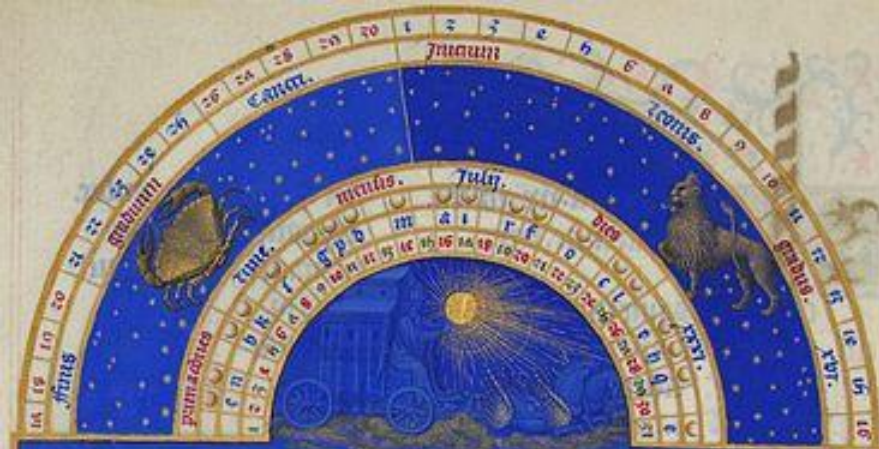 17 18 19 20 21 22 23 24 25 26 27 28 29 30 1 2 3 4 5 6 7 8 9 10 11 12 13 14 15 16
ffinis graduum Cancri. Inicium Leonis. gradus. xvi.
lune. mensis. July. dies xxxi.
g p d m a i r f
1 2 3 4 5 6 7 8 9 10 11 12 13 14 15 16 17 18 19 20 21 22 23 24 25 26 27 28 29 30 31